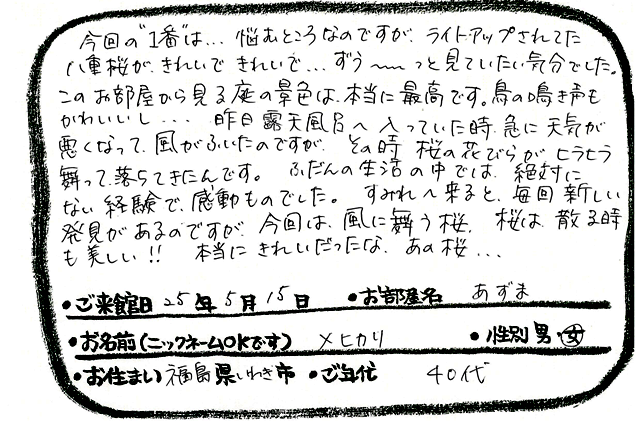 今回の"1番"は… 悩むところなのですが、ライトアップされてた
八重桜が、きれいで きれいで… ずう〜〜っと見ていたい気分でした。
このお部屋から見る庭の景色は、本当に最高です。鳥の鳴き声も
かわいいし… 昨日露天風呂へ入っていた時、急に天気が
悪くなって、風がふいたのですが、その時 桜の花びらが ヒラヒラ
舞って、落ちてきたんです。 ふだんの生活の中では、絶対に
ない 経験で、感動ものでした。 すみれへ来ると、毎回 新しい
発見があるのですが、今回は、風に舞う桜。 桜は、散る時
も美しい!! 本当に きれいだったな、あの桜…
•ご来館日 25年 5月 15日 •お部屋名 あずま
•お名前(ニックネームOKです) メヒカリ •性別 男・女
•お住まい 福島県いわき市 •ご年代 40代